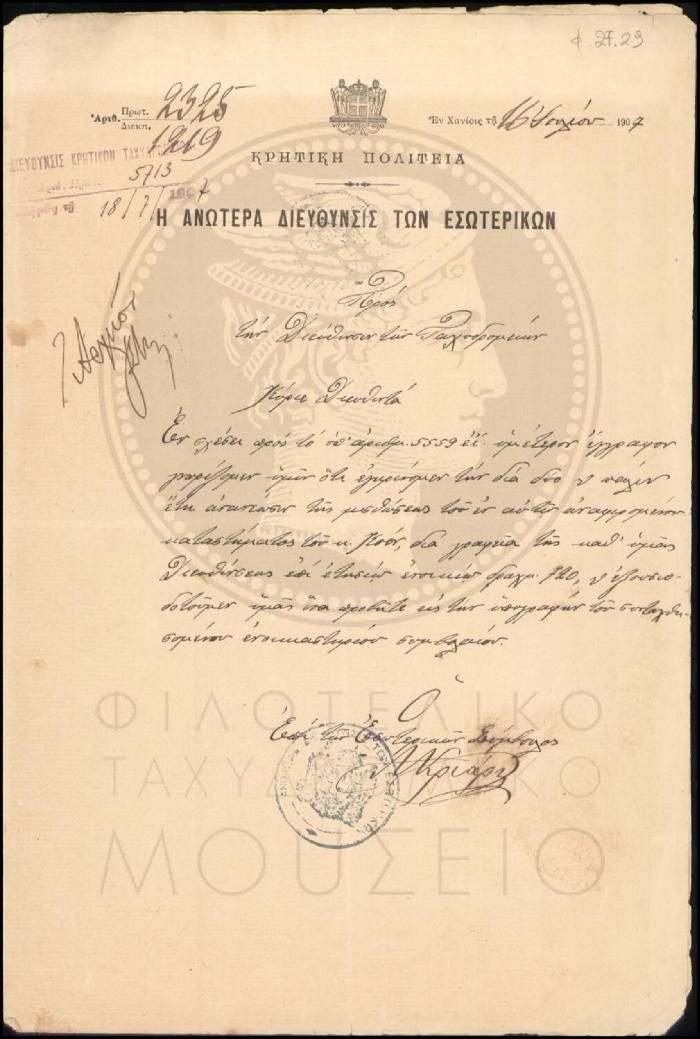 φ 27.29
Ἀριθ. Πρωτ. 2325
Διεκπ. 1219
Ἐν Χανίοις τῇ 16 Ἰουλίου 1907
ΔΙΕΥΘΥΝΣΙΣ ΚΡΗΤΙΚΩΝ ΤΑΧΥΔ
5713
18/7/1907
ΚΡΗΤΙΚΗ ΠΟΛΙΤΕΙΑ
Η ΑΝΩΤΕΡΑ ΔΙΕΥΘΥΝΣΙΣ ΤΩΝ ΕΣΩΤΕΡΙΚΩΝ
Πρός
τὴν Διεύθυνσιν τῶν Ταχυδρομείων
Κύριε Διευθυντά
Ἐν σχέσει πρὸς τὸ ὑπ' ἀριθμ. 5559 ἐ.ἔ. ὑμέτερον ἔγγραφον
γνωρίζομεν ὑμῖν ὅτι ἐγκρίνομεν τὴν διὰ δύο
ἔτη ἀνανέωσιν τῆς μισθώσεως τοῦ ἐν αὐτῷ ἀναφερομένου
καταστήματος τοῦ κ. διὰ γραφεῖα τῆς καθ' ὑμᾶς
Διευθύνσεως ἐπὶ ἐτησίῳ ἐνοικίῳ δραχμ. 720, ἐξουσιο-
δοτοῦμεν ὑμᾶς ἵνα προβῆτε εἰς τὴν ὑπογραφὴν τοῦ συνταχθη-
σομένου ἐνοικιαστηρίου συμβολαίου.
Ὁ
Ἐπὶ τῶν Ἐσωτερικῶν Σύμβουλος
ΦΙΛΟΤΕΛΙΚΟ
ΤΑΧΥΔΡΟΜΙΚΟ
ΜΟΥΣΕΙΟ